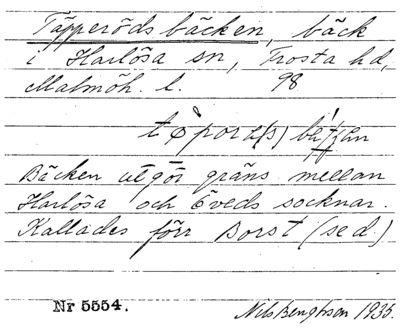 Täpperödsbäcken, bäck
i Harlösa sn, Frosta hd,
Malmöh. l. 98
Bäcken utgör gräns mellan
Harlösa och Öveds socknar.
Kallades förr Borst (se d.)
Nr 5554. Nils Bengtsson 1935.